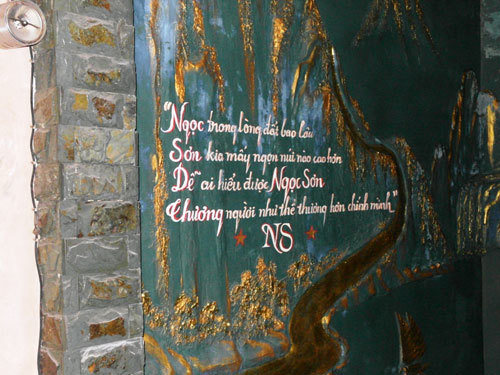 "Ngọc trong lòng đất bao lâu
Sơn kia mấy ngọn núi nào cao hơn
Dễ ai hiểu được Ngọc Sơn
Thương người như thể thương hơn chính mình"
NS